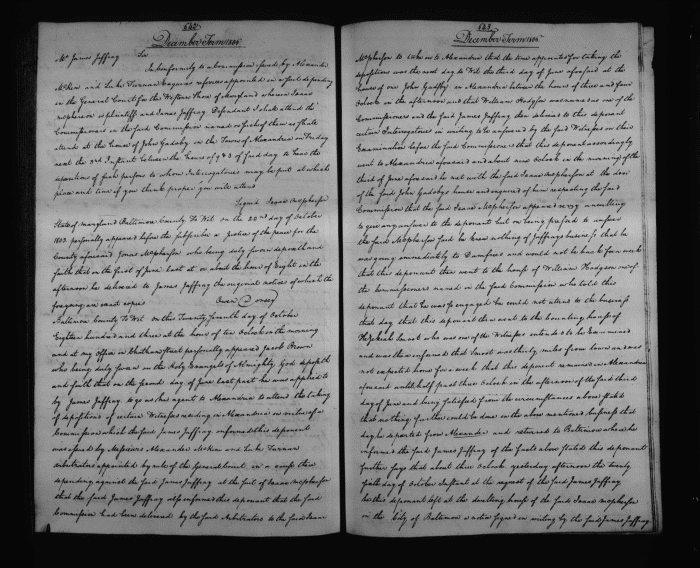 542
December Term 1805
Mr James Jaffray
Sir
In conformity to a commission issued by Alexander
McKim and Luke Tiernan Esquires referees appointed in a suit depending
in the General Court for the Western Shore of Maryland wherein Isaac
McPherson is plaintiff and James Jaffray Defendant I shall attend the
Commissioners in the said Commission named or such of them as shall
attend at the House of John Gadsby in the Town of Alexandria on Friday
next the 3rd Instant between the hours of 9 & 3 of said day to have the
depositions of such persons to whom Interrogatories may be put at which
place and time if you think proper you will attend
Signed Isaac McPherson
State of Maryland Baltimore County To Wit on the 22nd day of October
1803 personally appeared before the subscriber a Justice of the peace for the
County aforesaid Jonas McPherson who being duly sworn deposeth and
saith that on the first of June last at or about the hour of Eight in the
afternoon he delivered to James Jaffray the original notices of which the
foregoing are exact copies
Owen Dorsey
Baltimore County To Wit on this Twenty seventh day of October
Eighteen hundred and three at the hour of ten Oclock in the morning
and at my office in Chatham Street personally appeared Jacob Brown
who being duly sworn on the Holy Evangels of Almighty God deposeth
and saith that on the second day of June last past he was applied to
by James Jaffray to go as his agent to Alexandria to attend the taking
of depositions of certain Witnesses residing in Alexandria in virtue of a
Commission which the said James Jaffray informed this deponent
was issued by Messieurs Alexander McKim and Luke Tiernan
Arbitrators appointed by rule of the General Court in a cause then
depending against the said James Jaffray at the suit of Isaac McPherson
that the said James Jaffray also informed this deponent that the said
Commission had been delivered by the said Arbitrators to the said Isaac
543
December Term 1805
McPherson to take on to Alexandria that the time appointed for taking the
depositions was the next day to Wit the third day of June aforesaid at the
house of one John Gadsby in Alexandria between the hours of three and four
Oclock in the afternoon and that William Hodgson was named as one of the
Commissioners and the said James Jaffray then delivered to this deponent
certain Interrogatories in writing to be answered by the said Witnesses on their
Examination before the said Commissioners that this deponent accordingly
went to Alexandria aforesaid and about nine Oclock in the morning of the
third of June aforesaid he met with the said Isaac McPherson at the door
of the said John Gadsbys house and enquired of him respecting the said
Commission that the said Isaac McPherson appeared very unwilling
to give any answer to the deponent but on being pressed to answer
the said McPherson said he knew nothing of Jaffrays business that he
was going immediately to Dumfries and would not be back for a week
that this deponent then went to the house of William Hodgson one of
the commissioners named in the said Commission who told this
deponent that he was so engaged he could not attend to the business
that day that this deponent then went to the counting house of
Smoot who was one of the Witnesses intended to be Examined
and was then informed that Smoot was thirty miles from home and was
not expected home for a week that this deponent remained in Alexandria
aforesaid untill half past three Oclock in the afternoon of the said third
of June and being satisfied from the circumstances above stated
that nothing further could be done in the above mentioned business that
day he departed from Alexandria and returned to Baltimore where he
informed the said James Jaffray of the facts above stated this deponent
further says that about three Oclock yesterday afternoon the twenty
sixth day of October Instant at the request of the said James Jaffray
he this deponent left at the dwelling house of the said Isaac McPherson
in the City of Baltimore a notice signed in writing by the said James Jaffray